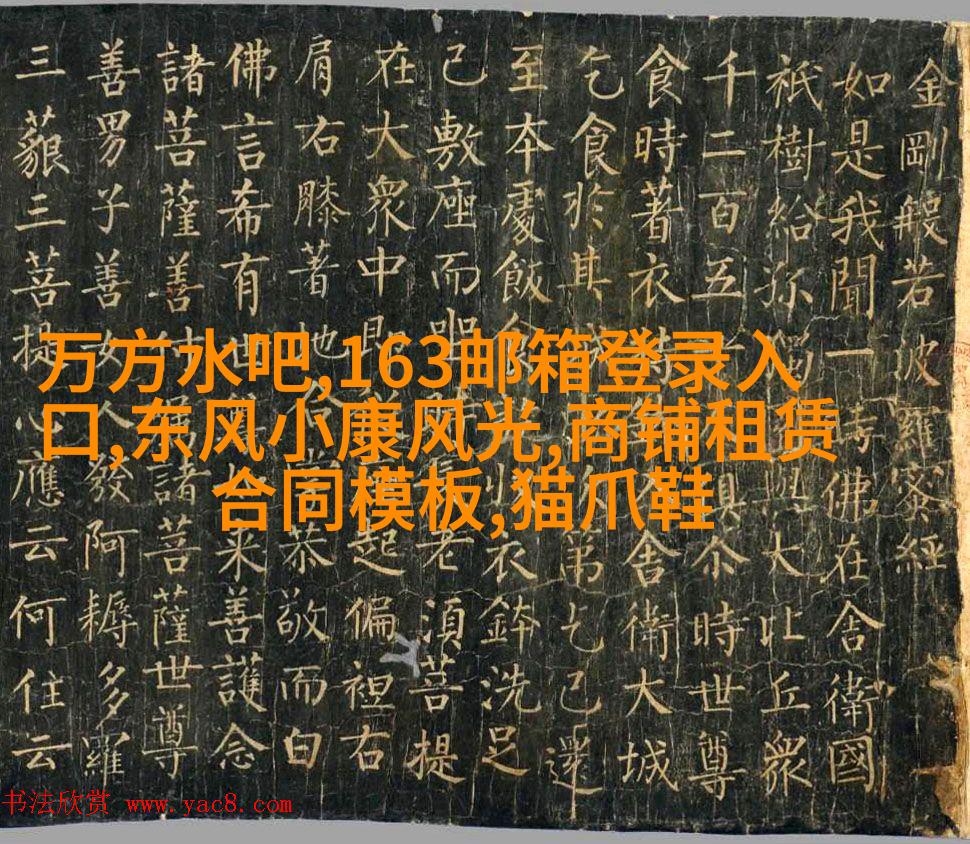 金剛般若波羅蜜經
如是我聞一時佛在舍衛國
祇樹給孤獨與大比丘眾
千二百五俱尒時世尊
食時著衣持舍衛大城
乞食於其城第乞已還
至本處飯食衣鉢洗足
已敷座而坐老須菩提
在大眾中即起偏袒右
肩右膝著地恭敬而白
佛言希有世來善護念
諸菩薩善付囑諸菩薩世尊
善男子善女人發阿耨多羅
三藐三菩提心應云何住云
万方水吧,163邮箱登录入
口,东风小康风光,商铺租赁
合同模板,猫爪鞋
书法欣赏 www.yac8.com